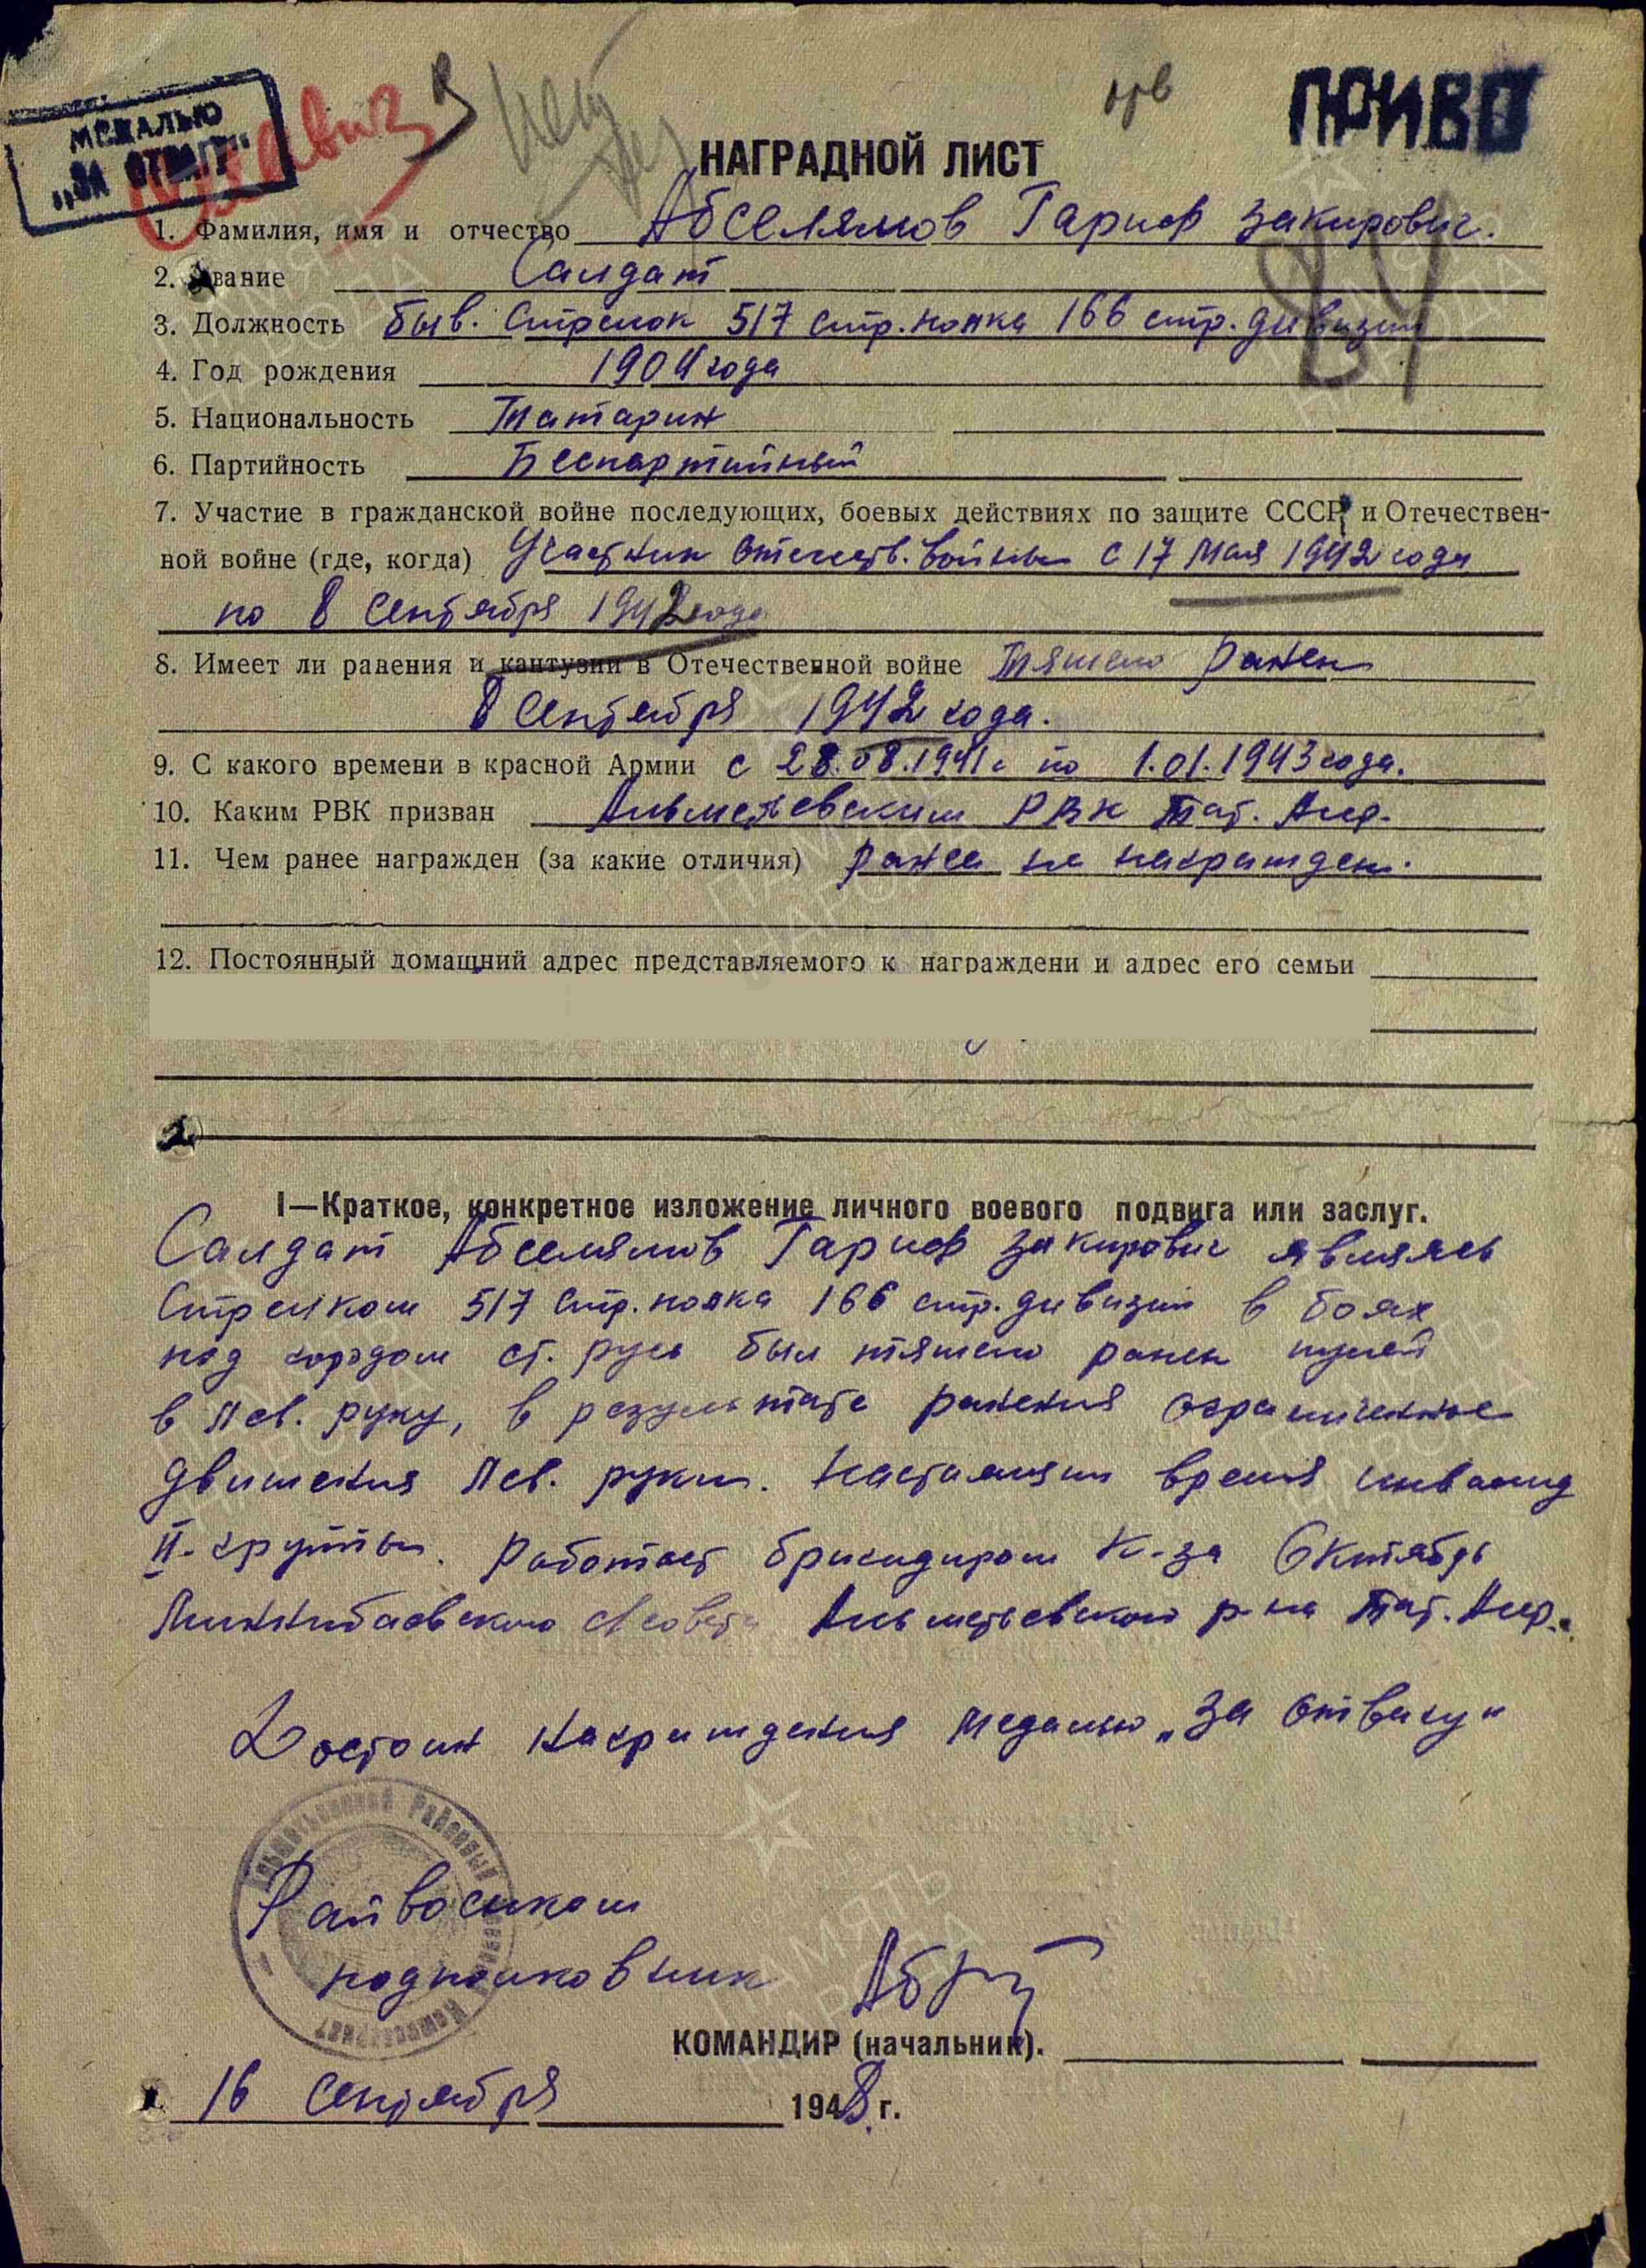 МЕДАЛЬЮ
„ЗА ОТВАГУ“
ПРИВО
НАГРАДНОЙ ЛИСТ
1. Фамилия, имя и отчество Абселямов Гариф Закирович.
2. Звание Салдат
3. Должность быв. Стрелок 517 стр. полка 166 стр. дивизии
84
4. Год рождения 1904 года
5. Национальность Татарин
6. Партийность Беспартийный
7. Участие в гражданской войне последующих, боевых действиях по защите СССР и Отечествен-
ной войне (где, когда) Участник отечеств. войны с 17 мая 1942 года
по 8 Сентября 1942 года
8. Имеет ли ранения и кантузии в Отечественной войне Тяжело ранен
8 Сентября 1942 года.
9. С какого времени в красной Армии с 28.08.1941 г по 1.01.1943 года.
10. Каким РВК призван Альметевским РВК Тат. Асср.
11. Чем ранее награжден (за какие отличия) ранее не награжден.
12. Постоянный домашний адрес представляемого к награждени и адрес его семьи
I—Краткое, конкретное изложение личного воевого подвига или заслуг.
Салдат Абселямов Гариф Закирович являясь
Стрелком 517 стр. полка 166 стр. дивизии в боях
под городом ст. русь был тяжело ранен пулей
в лев. руку, в результате ранения ограниченное
движения лев. руки. Настаящи время инвалид
II-группы. Работает бригадиром К-за Октябрь
Миннибаевского с/совета Альметьевского р-на Тат. Асср.
Достоин награждения медалью „За отвагу“
Райвоенком
подполковник
КОМАНДИР (начальник).
16 Сентября 1948 г.
ПАМЯТЬ
НАРОДА